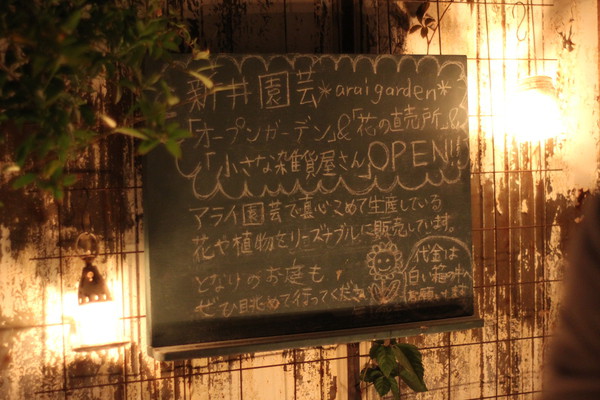 新井園芸*arai garden*
「オープンガーデン」&「花の直売所」&
「小さな雑貨屋さん」OPEN!!
アライ園芸で真心こめて生産している
花や植物をリーズナブルに販売しています。
となりのお庭も
ぜひ眺めて行ってください
代金は
白い箱の中へ
お願いします